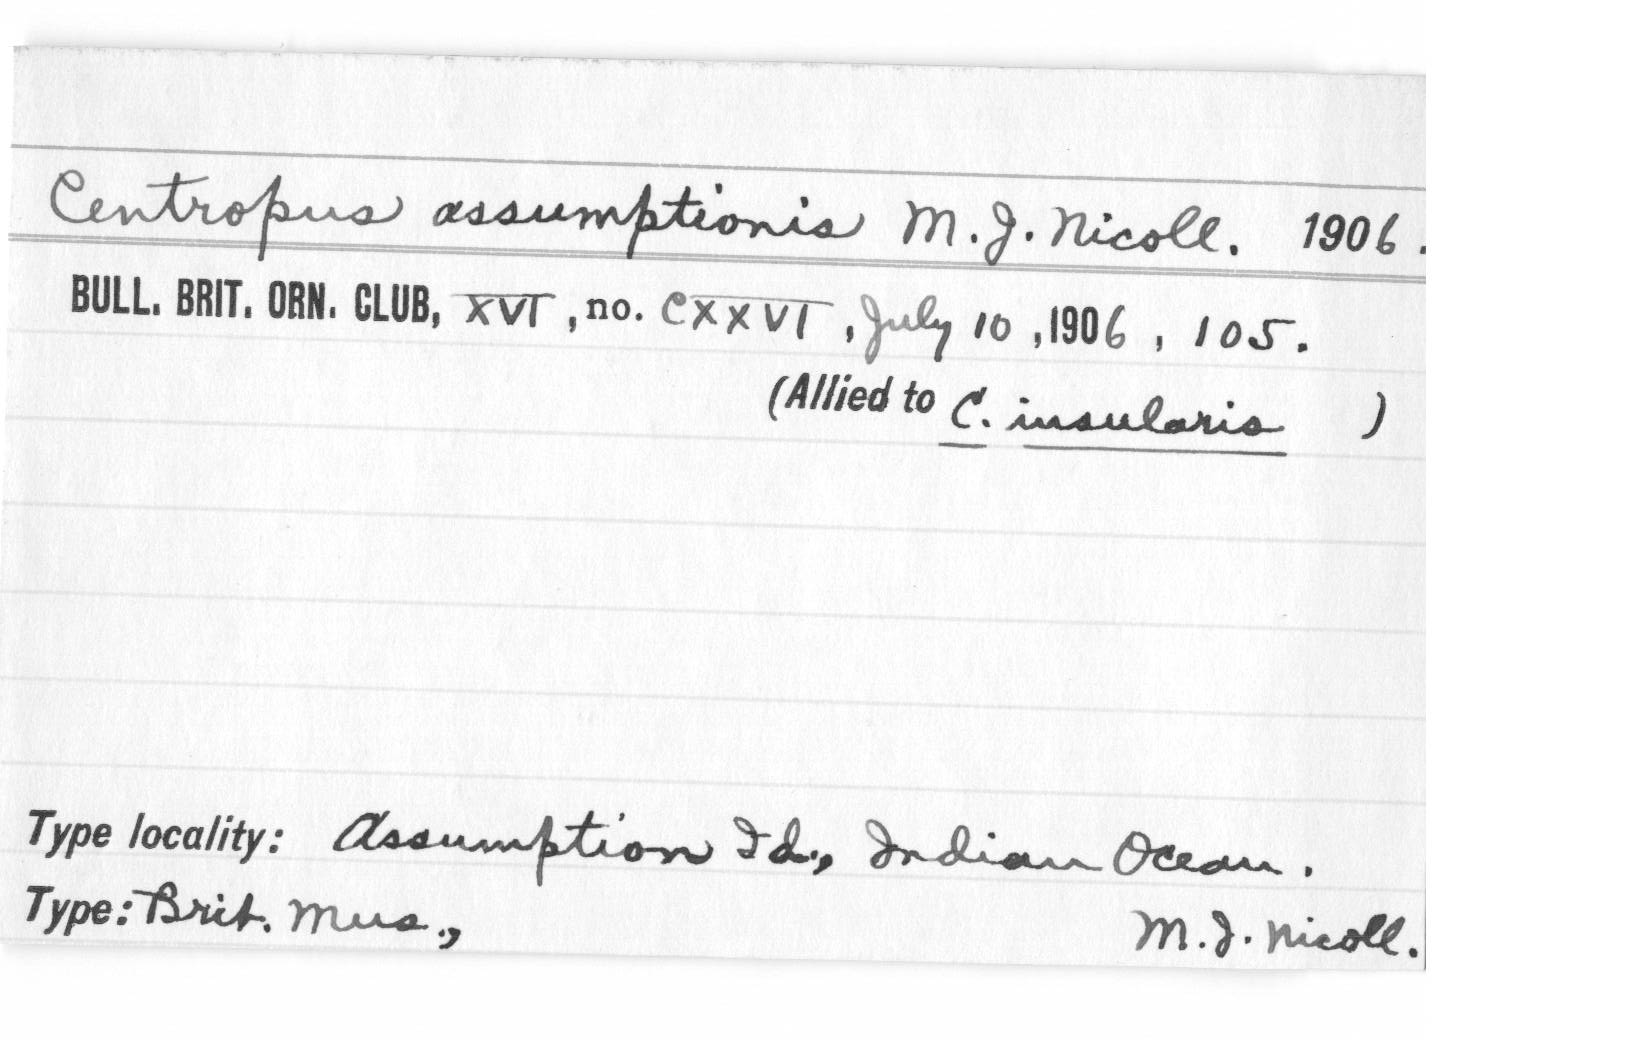 Centropus assumptionis M. J. Nicoll. 1906.
BULL. BRIT. ORN. CLUB, XVI, no. CXXVI, July 10, 1906, 105.
(Allied to C. insularis )
Type locality: Assumption Id., Indian Ocean.
Type: Brit. Mus., M. J. Nicoll.